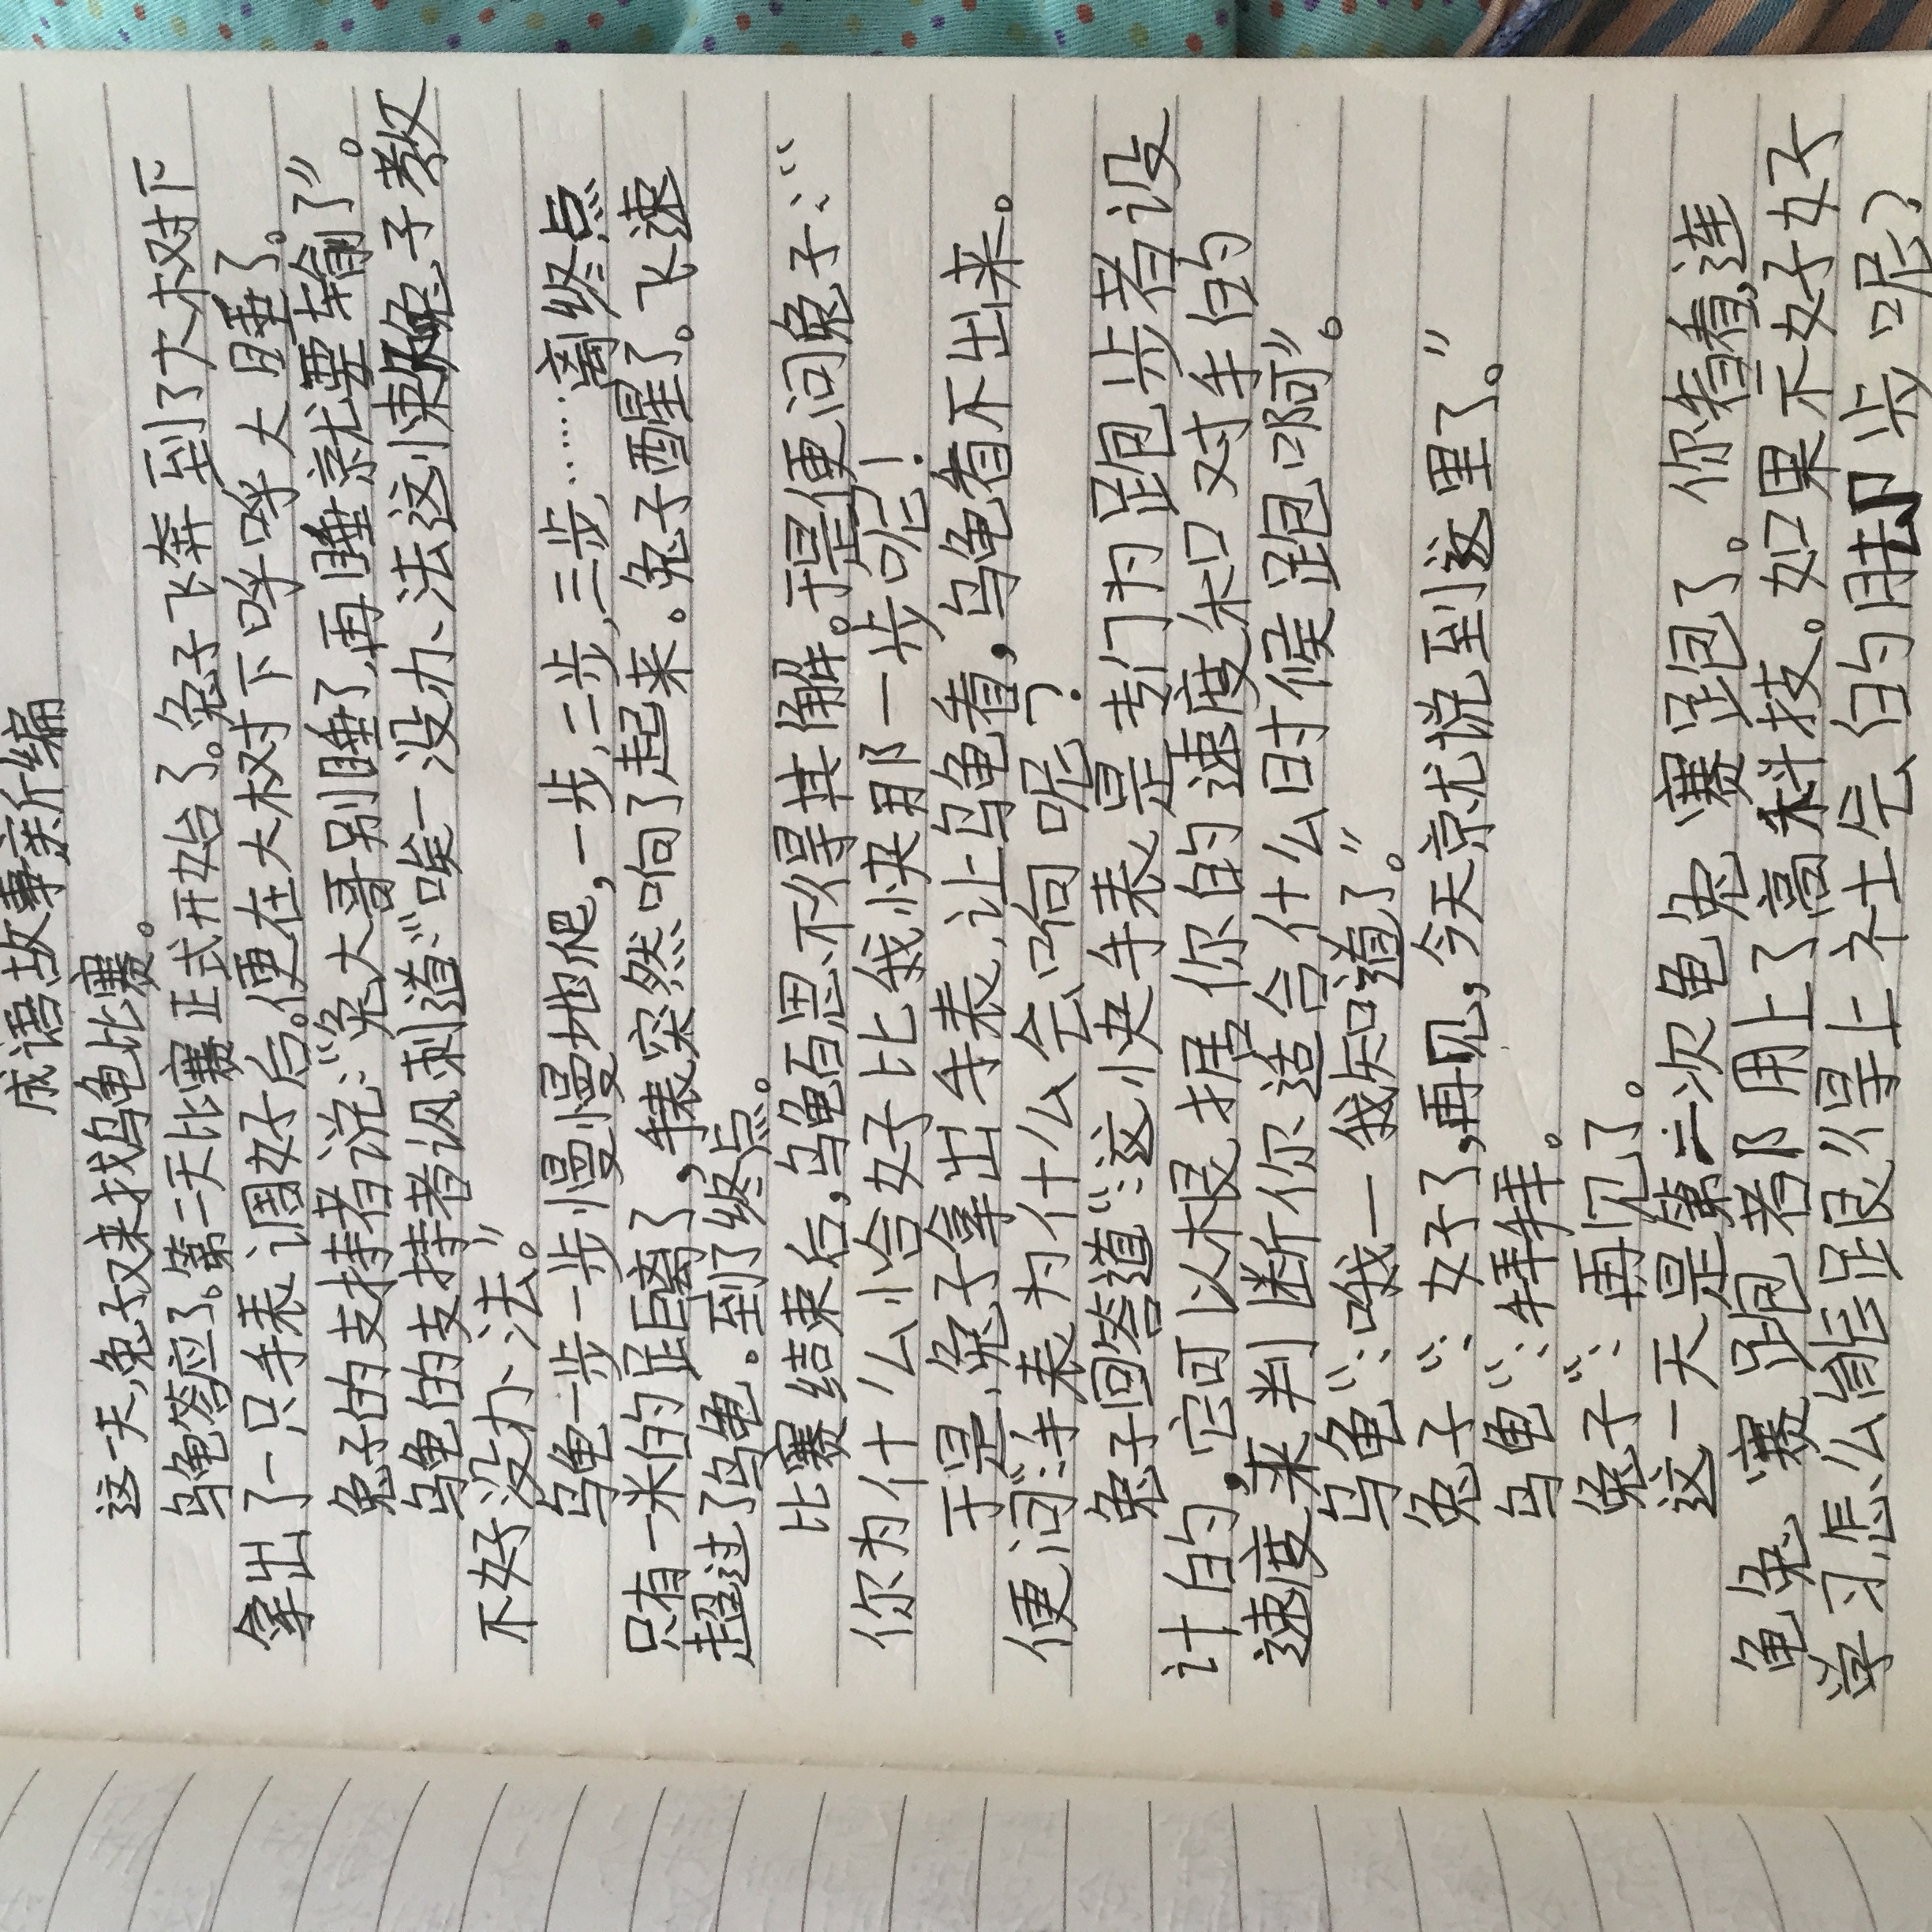 成语故事新编
这一天,兔子又来找乌龟比赛。
乌龟答应了。第二天比赛正式开始了。兔子飞奔到了大树下
拿出了一只手表,调好后。便在大树下呼呼大睡了。
兔子的支持者说:“兔大哥别睡了,再睡就要输了”。
乌龟的支持者讽刺道:“唉一没办法这懒兔子教
不好没办法。”
乌龟一步一步慢慢地爬,一步,二步,三步……离终点
只有一米的距离了,手表突然响了起来。兔子醒了。飞速
超过了乌龟。到了终点。
比赛结束后,乌龟百思不得其解。于是便问兔子:“
你为什么恰好比我快那一步呢!
于是,兔子拿出手表,让乌龟看,乌龟看不出来。
便问:“手表为什么会响呢?
兔子回答道“:这快手表是专门为跑步者设
计的,它可以根据你的速度和对手的
速度来判断你适合什么时候跑啊”。
乌龟“:哦一我知道了。”
兔子“:好了,再见,今天就说到这里了。”
乌龟“:拜拜。
兔子“:再见了。
这一天是第二次龟兔赛跑了。你看,连
龟兔赛跑者都用上了高科技。如果不好好
学习怎么能跟得上社会的脚步呢?